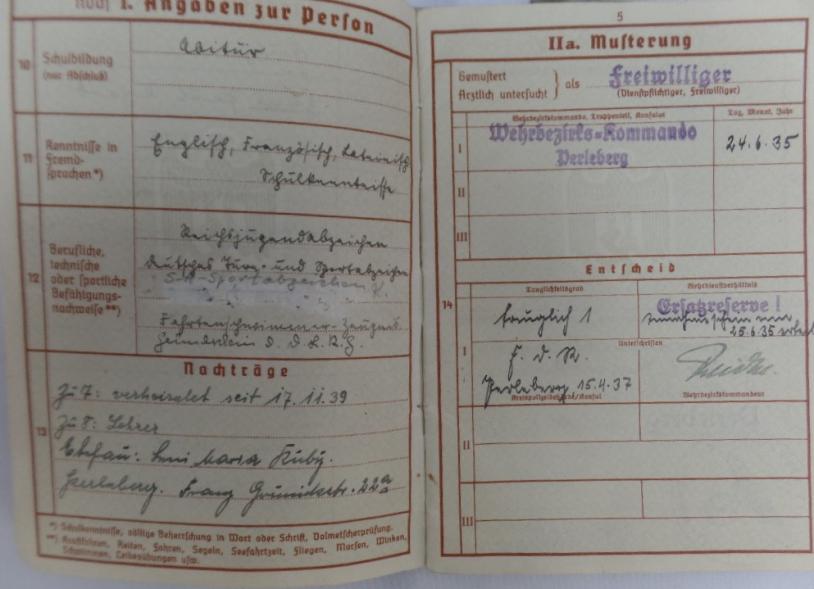 Noch I. Angaben zur Person
10 Schulbildung
(nur Abschluß)
Abitur
11 Kenntnisse in
Fremd-
sprachen *)
Englisch, Französisch, Lateinisch
Schulkenntnisse
12 Berufliche,
technische
oder sportliche
Befähigungs-
nachweise **)
Reichsjugendabzeichen
Deutsches Turn- und Sportabzeichen
S.A-Sportabzeichen
Fahrtenschwimmer-Zeugnis
D. L. R. G.
Nachträge
13
Zu 7: verheiratet seit 17. 11. 39
Zu 8: Lehrer
Ehefrau: Maria
Perleberg. 22a
*) Schulkenntnisse, völlige Beherrschung in Wort oder Schrift, Dolmetscherprüfung.
**) Kraftfahren, Reiten, Fahren, Segeln, Seefahrtzeit, Fliegen, Morsen, Winken,
Schwimmen, Leibesübungen usw.
5
IIa. Musterung
Gemustert
Ärztlich untersucht } als Freiwilliger
(Dienstpflichtiger, Freiwilliger)
Wehrbezirkskommando, Truppenteil, Konsulat
Tag, Monat, Jahr
I Wehrbezirks=Kommando
Perleberg
24. 6. 35
II
III
Entscheid
14
Tauglichkeitsgrad
Wehrdienstverhältnis
tauglich 1
Ersatzreserve I
25.6.35
I
Unterschriften
F. d. R.
Perleberg 15.4.37
Kreispolizeibehörde/Konsul
Wehrbezirkskommandeur
II
III